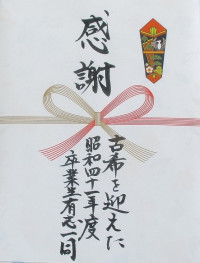 感謝
古希を迎えた
昭和四十一年度
卒業生有志一同